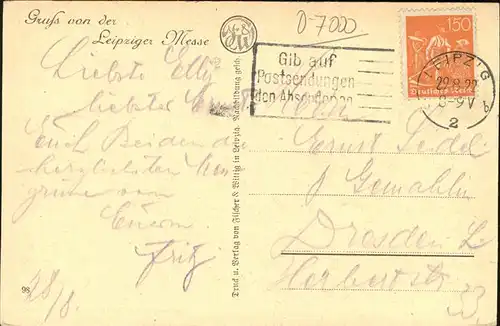 Gruß von der
Leipziger Messe
0-7000
Gib auf
Postsendungen
den Absender an
150
Deutsches Reich
LEIPZIG
8-9V
2
Liebste Elly
liebster Ernst
Euch Beiden die
herzlichsten
Grüsse von
Eurem
Fritz
28/8.
98
Druck u. Verlag von Filcher & Wittig in Leipzig. Nachbildung gesch.
Ernst Seidel
& Gemahlin
Dresden
Herbertstr.
33